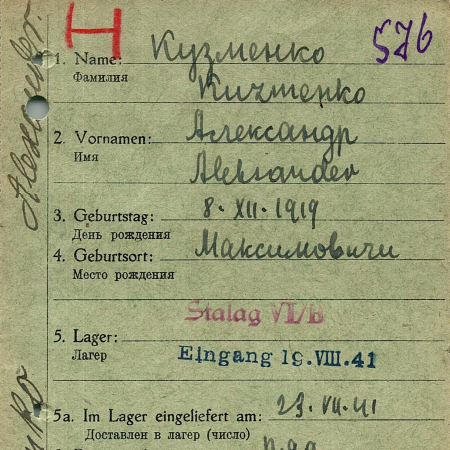 H
576
Alexander.
1. Name: Кузменко
Фамилия
Kuzmenko
2. Vornamen: Александр
Имя
Aleksander
3. Geburtstag: 8. XII. 1919
День рождения
4. Geburtsort: Максимовичи
Место рождения
Stalag VI/B
5. Lager:
Лагерь
Eingang 19. VIII. 41
5a. Im Lager eingeliefert am: 23. VII. 41
Доставлен в лагер (число)